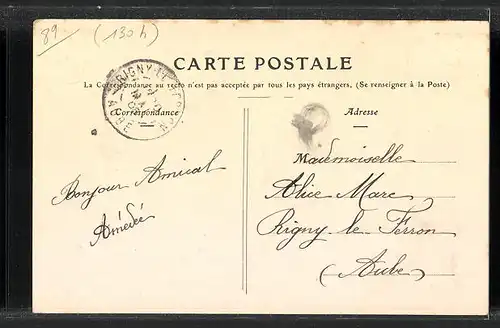 89
(130 h)
CARTE POSTALE
La Correspondance au recto n'est pas acceptée par tous les pays étrangers, (Se renseigner à la Poste)
RIGNY-LE-FERRON
AUBE
Correspondance
Adresse
Bonjour Amical
Amédée
Mademoiselle
Alice Marc
Rigny-le-Ferron
(Aube)